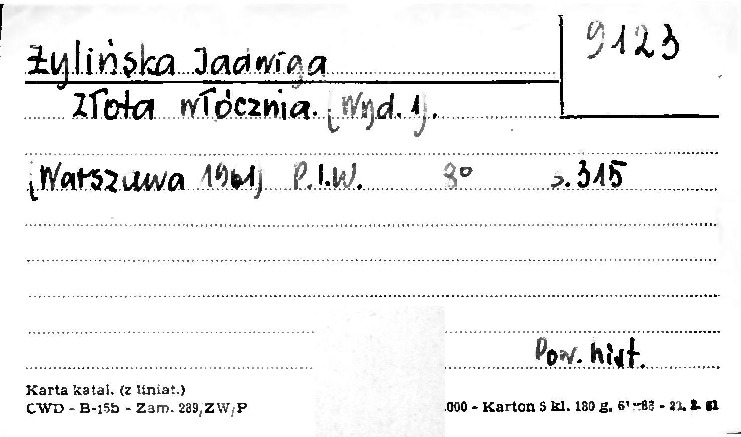 9123
Żylińska Jadwiga
Złota włócznia. [Wyd. 1].
[Warszawa 1961] P.I.W. 8° s. 315
Pow. hist.
Karta katal. (z liniat.)
CWD - B-15b - Zam. 289/ZW/P
.000 - Karton 5 kl. 180 g. 61